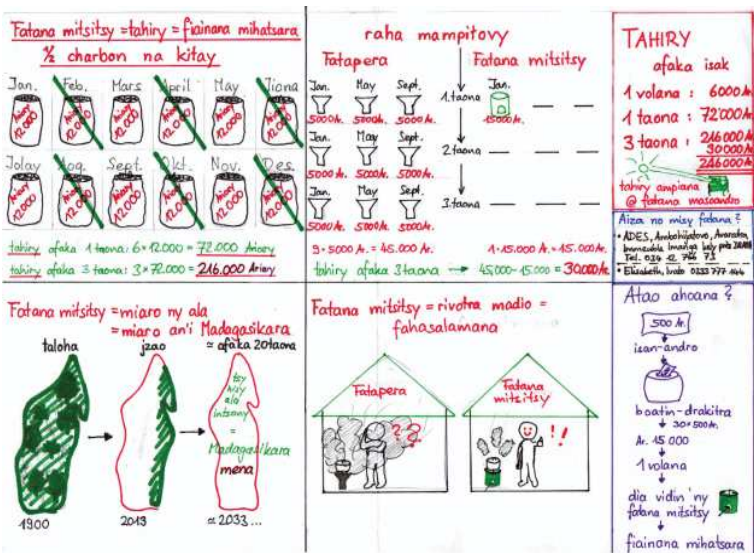 Fatana mitsitsy = tahiry = fiainana mihatsara
½ charbon na kitay
Jan. Feb. Mars April May Jiona
Ariary 12.000 Ariary 12.000 Ariary 12.000 Ariary 12.000 Ariary 12.000 Ariary 12.000
Jolay Aog. Sept. Okt. Nov. Des.
Ariary 12.000 Ariary 12.000 Ariary 12.000 Ariary 12.000 Ariary 12.000 Ariary 12.000
tahiry afaka 1 taona: 6 × 12.000 = 72.000 Ariary
tahiry afaka 3 taona: 3 × 72.000 = 216.000 Ariary
raha mampitovy
Fatapera
Fatana mitsitsy
Jan. May Sept.
5000 Ar. 5000 Ar. 5000 Ar.
1. taona
Jan.
15000 Ar.
Jan. May Sept.
5000 Ar. 5000 Ar. 5000 Ar.
2. taona
Jan. May Sept.
5000 Ar. 5000 Ar. 5000 Ar.
3. taona
9 · 5000 Ar. = 45.000 Ar.
1 · 15.000 Ar. = 15.000 Ar.
tahiry afaka 3 taona → 45.000 - 15.000 = 30.000 Ar.
TAHIRY
afaka isak
1 volana : 6000 Ar.
1 taona : 72'000 Ar.
3 taona : 216000 Ar.
30000 Ar.
246000 Ar.
tahiry ampiana
@ fatana masoandro
Aiza no misy fatana ?
• ADES, Ambohijatovo, Avaradra,
Tel. 034 12
• Elisabeth, Ivato 0333 777
Fatana mitsitsy = miaro ny ala
= miaro an'i Madagasikara
taloha
jzao
≈ afaka 20 taona
tsy
misy
ala
intsony
=
Madagasikara
mena
1900
2013
≈ 2033 ...
Fatana mitsitsy = rivotra madio =
fahasalamana
Fatapera
??
Fatana
mitsitsy
!!
Atao ahoana ?
500 Ar.
isan-andro
boatin-drakitra
30 × 500 Ar.
Ar. 15 000
1 volana
dia vidin'ny
fatana mitsitsy
fiainana mihatsara